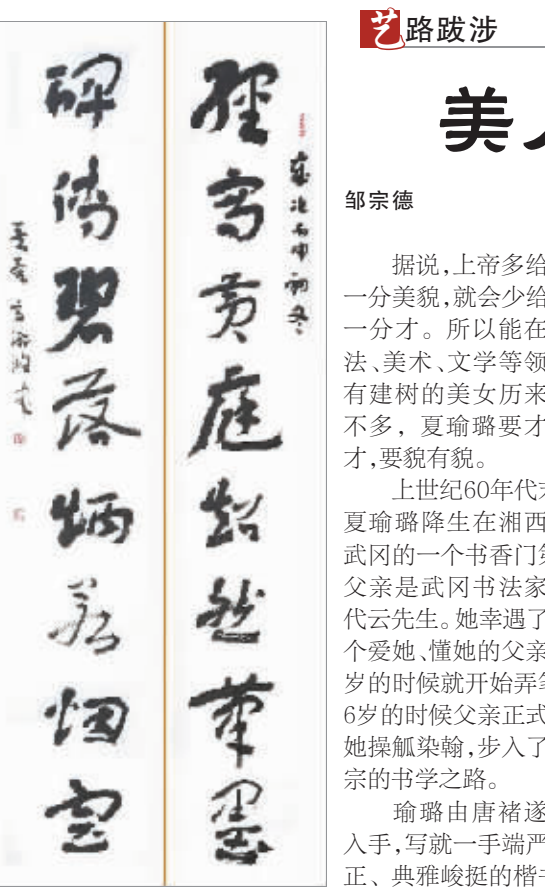 經寫黄庭超然筆墨
歲次丙申初冬
碑傳碧落炳若烟雲
艺路跋涉
美
邹宗德
据说,上帝多给
一分美貌,就会少给
一分才。所以能在
法、美术、文学等领
有建树的美女历来
不多，夏瑜璐要才
才,要貌有貌。
上世纪60年代末
夏瑜璐降生在湘西
武冈的一个书香门第
父亲是武冈书法家
代云先生。她幸遇了
个爱她、懂她的父亲
岁的时候就开始弄笔
6岁的时候父亲正式
她操觚染翰,步入了
宗的书学之路。
瑜璐由唐褚遂
入手,写就一手端严
正、典雅峻挺的楷书